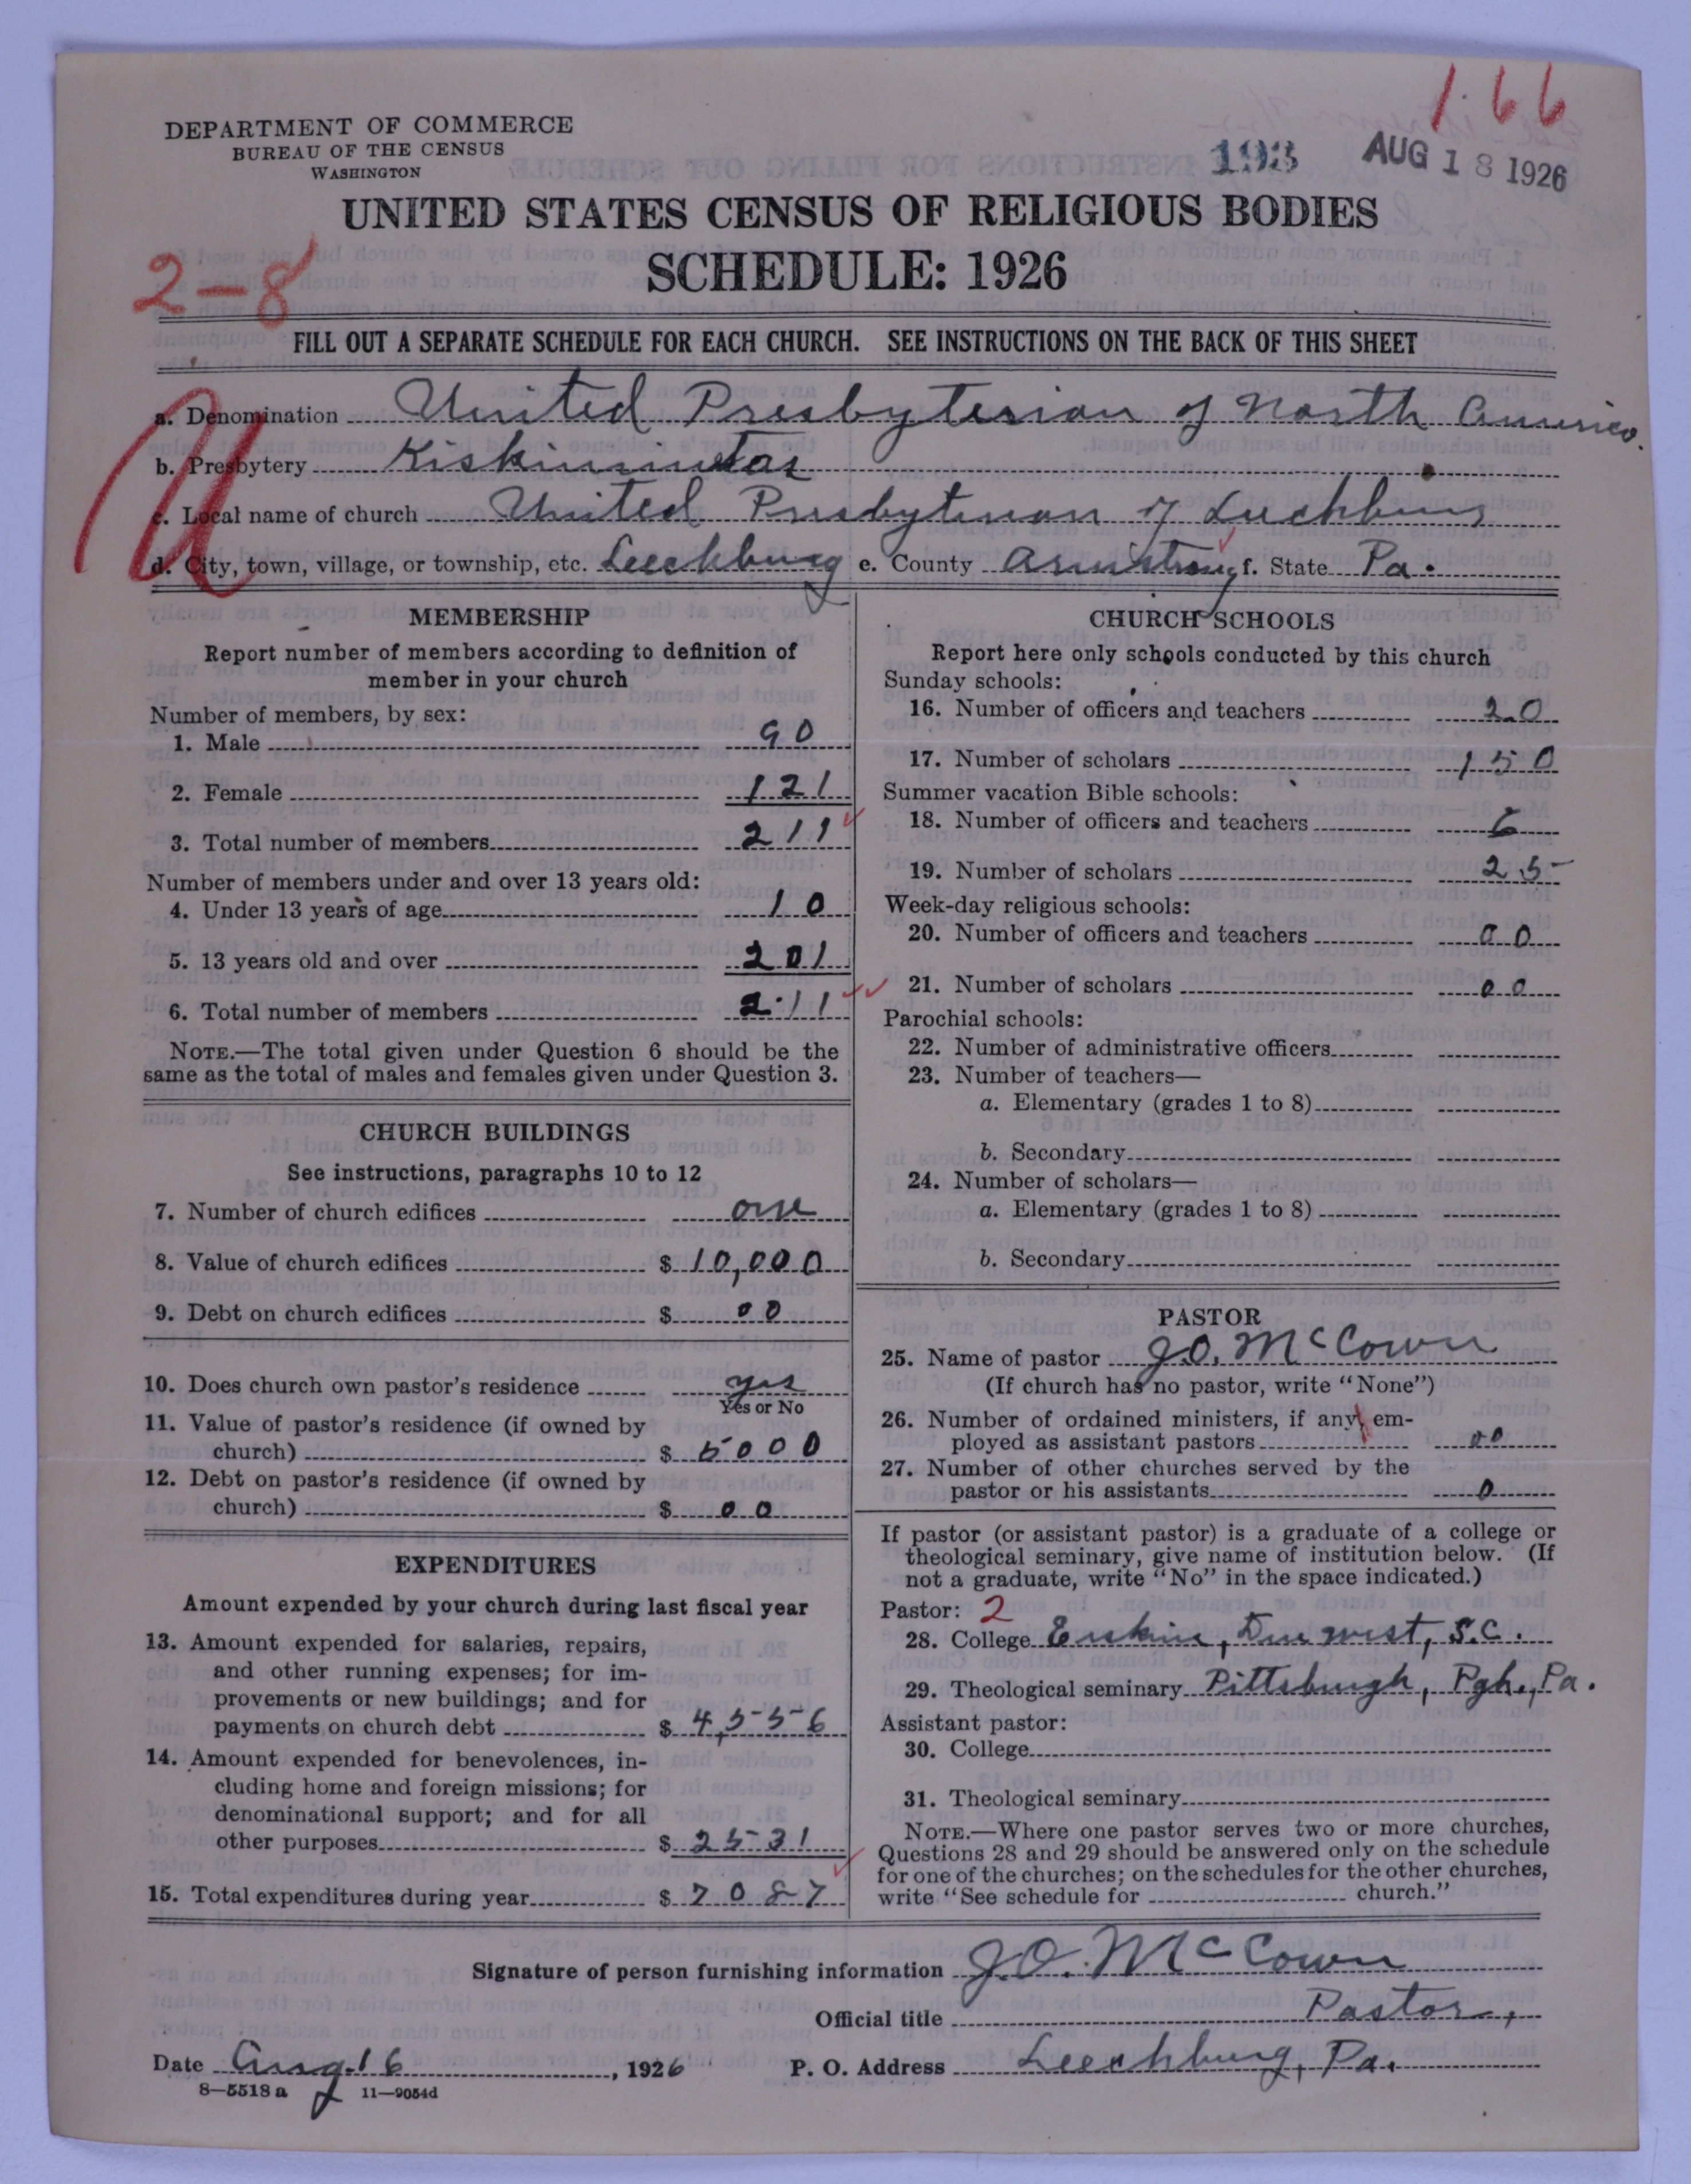 166
DEPARTMENT OF COMMERCE
BUREAU OF THE CENSUS
WASHINGTON
193 AUG 18 1926
UNITED STATES CENSUS OF RELIGIOUS BODIES
SCHEDULE: 1926
2-8
FILL OUT A SEPARATE SCHEDULE FOR EACH CHURCH. SEE INSTRUCTIONS ON THE BACK OF THIS SHEET
a. Denomination United Presbyterian of North America.
b. Presbytery Kiskiminetas
c. Local name of church United Presbyterian of Leechburg
d. City, town, village, or township, etc. Leechburg e. County Armstrong f. State Pa.
MEMBERSHIP
Report number of members according to definition of
member in your church
Number of members, by sex:
1. Male 90
2. Female 121
3. Total number of members 211
Number of members under and over 13 years old:
4. Under 13 years of age 10
5. 13 years old and over 201
6. Total number of members 211
NOTE.—The total given under Question 6 should be the
same as the total of males and females given under Question 3.
CHURCH BUILDINGS
See instructions, paragraphs 10 to 12
7. Number of church edifices one
8. Value of church edifices $ 10,000
9. Debt on church edifices $ 00
10. Does church own pastor's residence yes
Yes or No
11. Value of pastor's residence (if owned by
church) $ 5000
12. Debt on pastor's residence (if owned by
church) $ 00
EXPENDITURES
Amount expended by your church during last fiscal year
13. Amount expended for salaries, repairs,
and other running expenses; for im-
provements or new buildings; and for
payments on church debt $ 4,556
14. Amount expended for benevolences, in-
cluding home and foreign missions; for
denominational support; and for all
other purposes $ 2531
15. Total expenditures during year $ 7087
CHURCH SCHOOLS
Report here only schools conducted by this church
Sunday schools:
16. Number of officers and teachers 20
17. Number of scholars 150
Summer vacation Bible schools:
18. Number of officers and teachers 6
19. Number of scholars 25
Week-day religious schools:
20. Number of officers and teachers 00
21. Number of scholars 00
Parochial schools:
22. Number of administrative officers
23. Number of teachers—
a. Elementary (grades 1 to 8)
b. Secondary
24. Number of scholars—
a. Elementary (grades 1 to 8)
b. Secondary
PASTOR
25. Name of pastor J.O. McCown
(If church has no pastor, write "None")
26. Number of ordained ministers, if any, em-
ployed as assistant pastors 00
27. Number of other churches served by the
pastor or his assistants 0
If pastor (or assistant pastor) is a graduate of a college or
theological seminary, give name of institution below. (If
not a graduate, write "No" in the space indicated.)
Pastor: 2
28. College Erskine, Due West, S.C.
29. Theological seminary Pittsburgh, Pgh., Pa.
Assistant pastor:
30. College
31. Theological seminary
NOTE.—Where one pastor serves two or more churches,
Questions 28 and 29 should be answered only on the schedule
for one of the churches; on the schedules for the other churches,
write "See schedule for church."
Signature of person furnishing information J.O. McCown
Official title Pastor,
Date Aug. 16, 1926 P. O. Address Leechburg, Pa.
8—5518 a 11—9054d